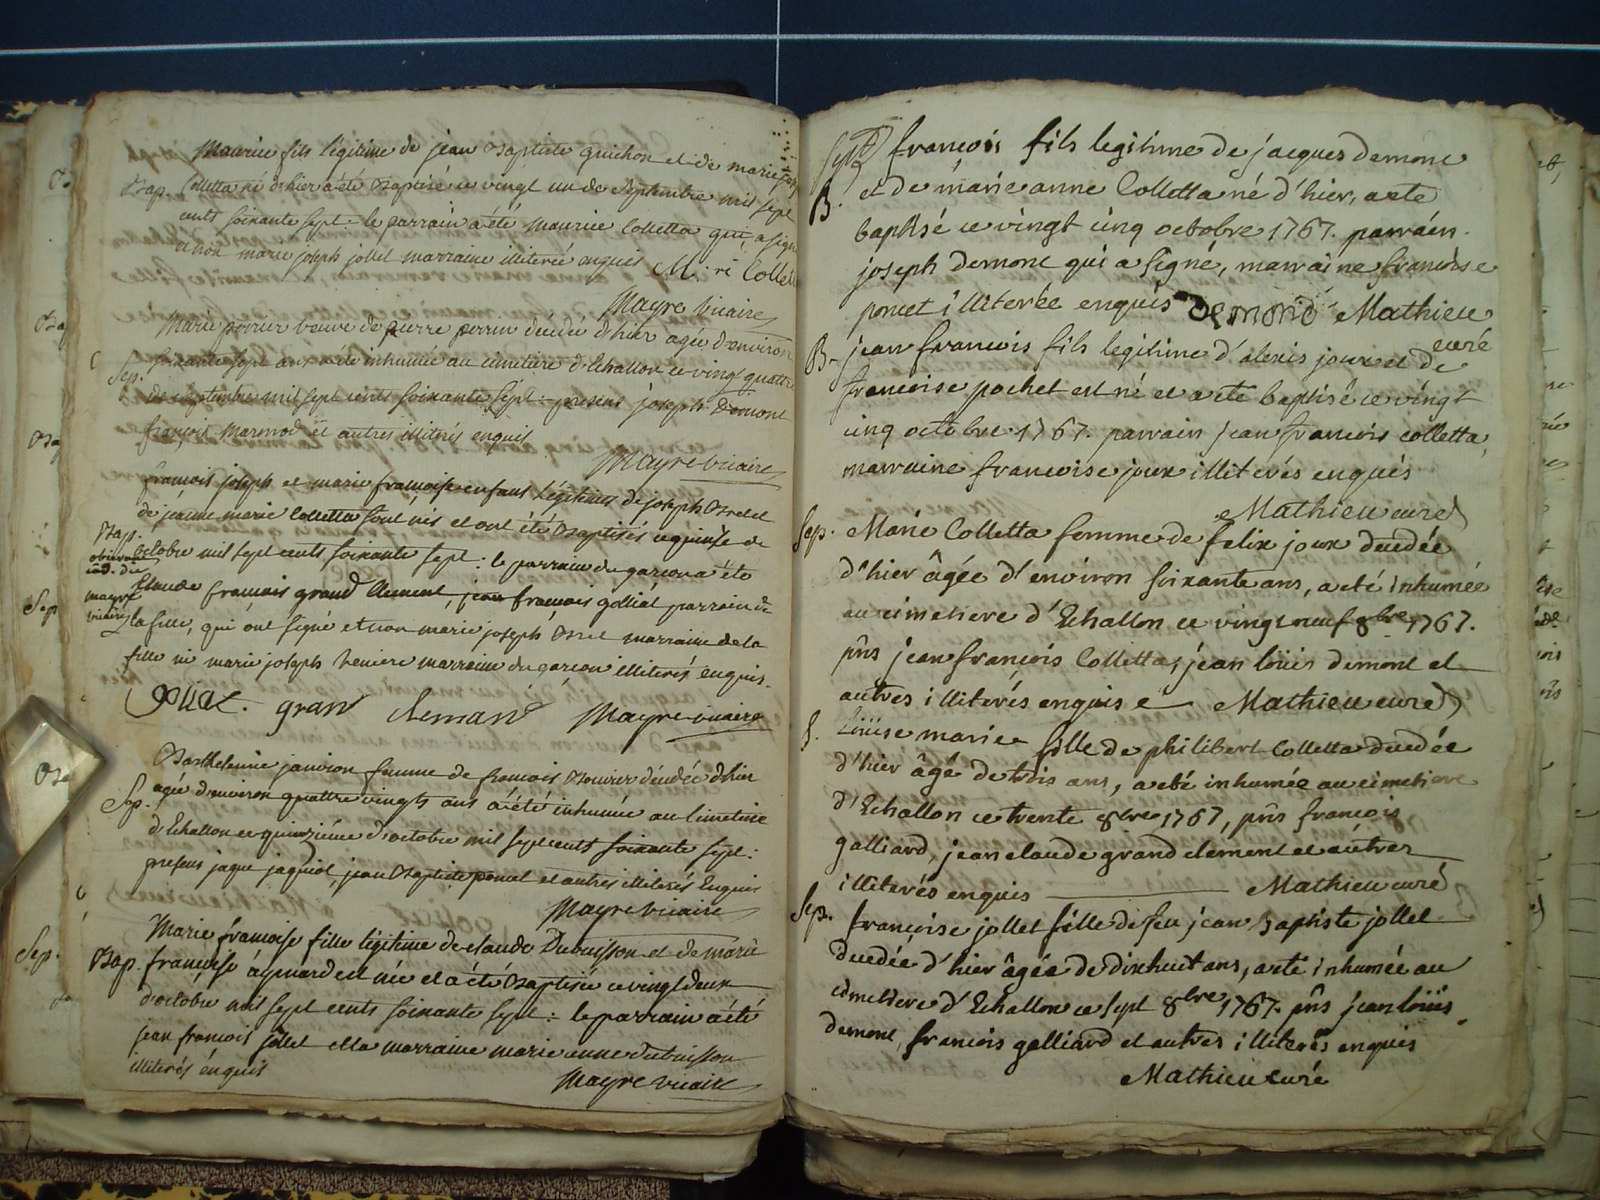 Maurice fils légitime de jean Baptiste guichon et de marie
Bap. Colletta né d'hier a été Baptisé ce vingt un de septembre mil sept
cents soixante sept : le parrain a été maurice Colletta qui a signé
et non marie joseph jollet marraine illiterée enquis M: ri Collet
Mayre vicaire
Marie perrier veuve de pierre perrin décédée d'hier agée d'environ
Sep. soixante sept ans a été inhumée au cimetiere d'Echallon ce vingt quattre
de septembre mil sept cents soixante sept : presens joseph Demont
françois marmod et autres illiterés enquis
Mayre vicaire
françois joseph et marie françoise enfans légitimes de joseph Bret et
de jeanne marie Colletta sont nés et ont été Baptisés ce quinse de
Bap. octobre mil sept cents soixante sept : le parrain du garcon a été
Claude françois grand Clement, jean françois golliat parrain de
mayre
vicaire la fille, qui ont signé et non marie joseph Bret marraine de la
fille ni marie joseph marraine du garcon illiterés enquis.
golliat. gran clemand Mayre vicaire
Barthelemie janvion femme de françois Bouvier décédée d'hier
Sep. agée d'environ quattre vingts ans a été inhumée au cimetiere
d'Echallon ce quinzieme d'octobre mil sept cents soixante sept :
presens jaque jaquiot, jean Baptiste poncet et autres illiterés Enquis
Mayre vicaire
Marie françoise fille légitime de claude Dubuisson et de marie
Bap. françoise aymard est née et a été Baptisée ce vingt deux
d'octobre mil sept cents soixante sept : le parrain a été
jean françois jollet et la marraine marie anne dubuisson
illiterés enquis
Mayre vicaire
françois fils legitime de jacques demont
B. et de marie anne Colletta né d'hier, a eté
baptisé ce vingt cinq octobre 1767. parrain
joseph demont qui a signé, marraine francoise
poncet illiterée enquis demond Mathieu
curé
B. jean francois fils legitime d'alexis joux et de
francoise pochet est né et a eté baptisé ce vingt
cinq octobre 1767. parrain jean françois colletta,
marraine francoise joux illiterés enquis
Mathieu curé
Sep. Marie Colletta femme de felix joux decedée
d'hier âgée d'environ soixante ans, a eté inhumée
au cimetiere d'Echallon ce vingt neuf 8bre 1767.
pns jean françois Colletta, jean loüis demont et
autres illiterés enquis Mathieu curé
S. Loüise marie fille de philibert Colletta decedée
d'hier âgé de trois ans, a eté inhumée au cimetiere
d'Echallon ce trente 8bre 1767, pns francois
galliard, jean claude grand clement et autres
illiterés enquis Mathieu curé
Sep. francoise jollet fille de feu jean baptiste jollet
decedée d'hier âgée de dixhuit ans, a eté inhumée au
cimetiere d'Echallon ce sept 8bre 1767. pns jean loüis
demont, francois galliard et autres illiterés enquis
Mathieu curé